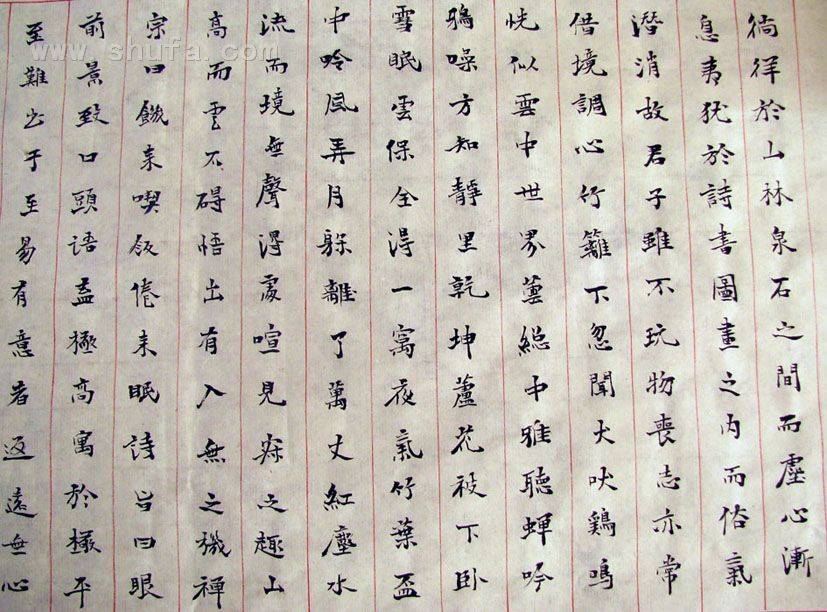 徜徉於山林泉石之間而塵心漸
息夷犹於詩書圖畫之内而俗氣
潛消故君子雖不玩物喪志亦常
借境調心竹籬下忽聞犬吠鷄鳴
恍似雲中世界蕓総中雅聽蟬吟
鴉噪方知靜里乾坤蘆花被下卧
雪眠雲保全得一窩夜氣竹葉盃
中吟風弄月躲離了萬丈紅塵水
流而境無聲得處喧見寂之趣山
高而雲不碍悟出有入無之機禪
宗曰饑来喫飯倦来眠詩旨曰眼
前景致口頭語盖極高寓於極平
至難出于至易有意者返遠無心
www.shufa.com